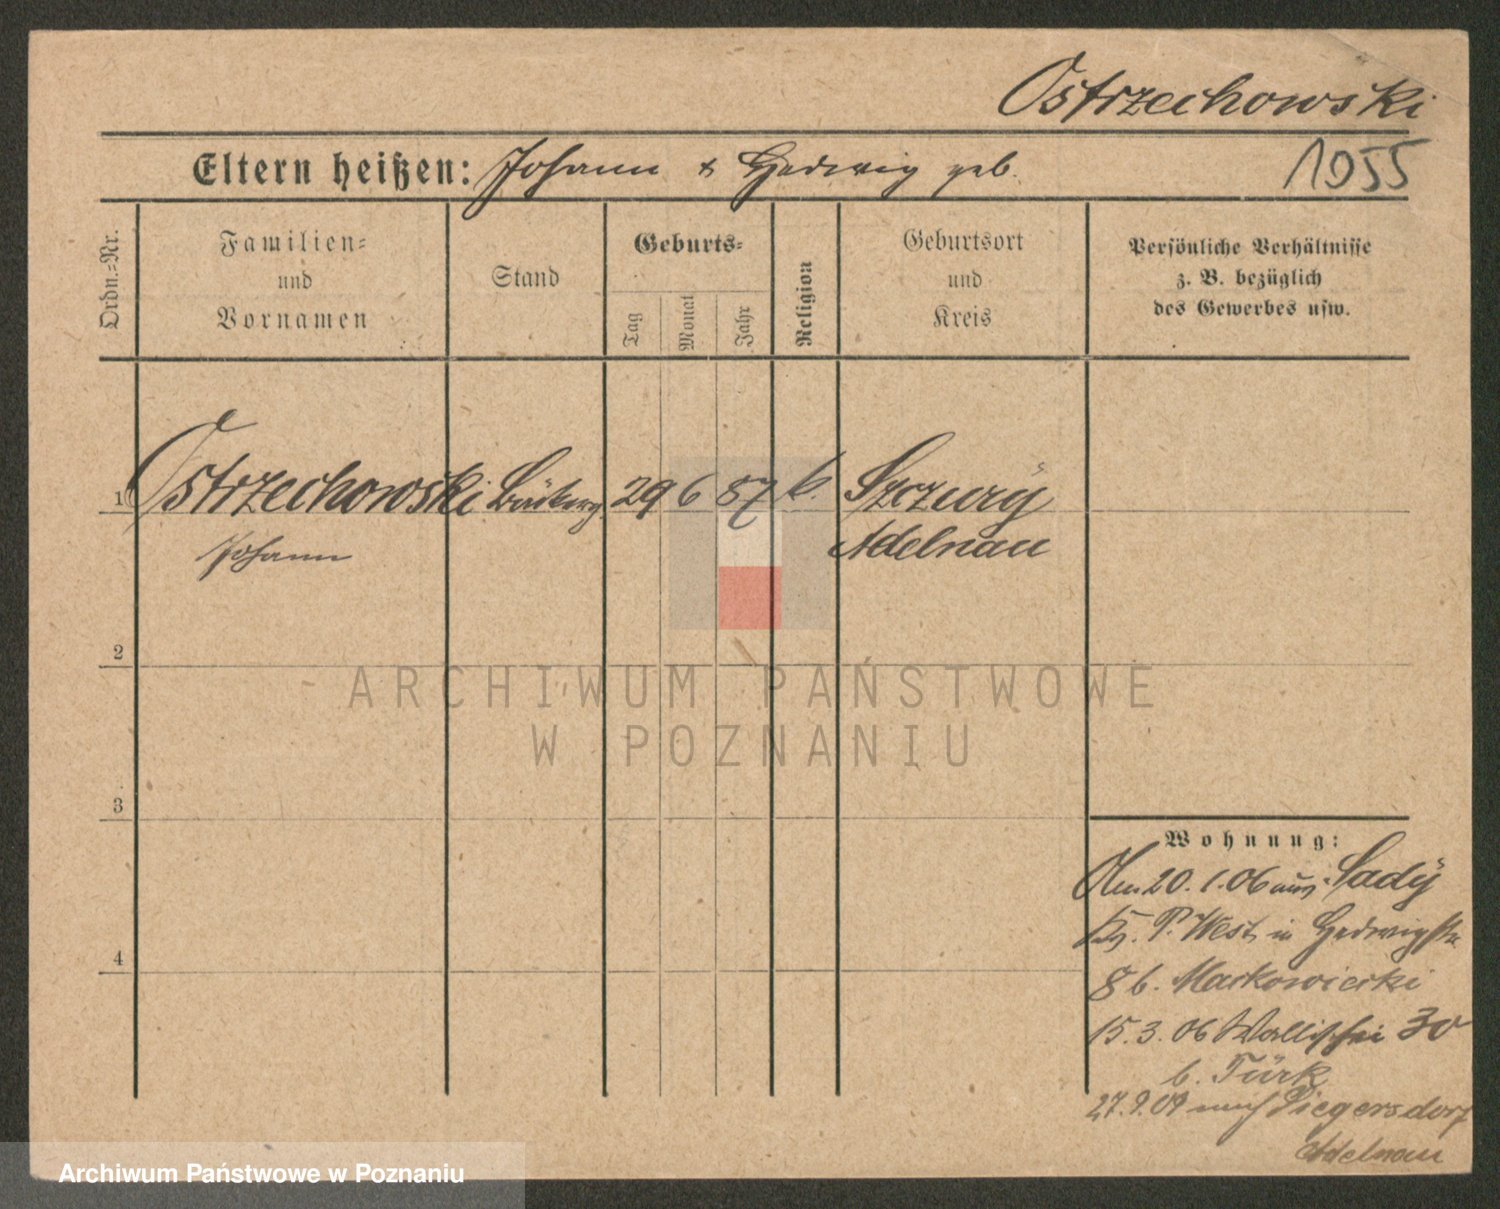 Ostrzechowski
Eltern heißen: Johann & Hedwig geb.
1055
Ordn.=Nr.
Familien=
und
Vornamen
Stand
Geburts=
Tag
Monat
Jahr
Religion
Geburtsort
und
Kreis
Persönliche Verhältnisse
z. B. bezüglich
des Gewerbes usw.
1 Ostrzechowski 29 6 87 k. Szczury
Johann Adelnau
2
3
4
Wohnung:
20.1.06 aus Sady
P. West in Hedwigstr
8 b. Markowicki
15.3.06 Wallischei 30
b. Türk
27.9.09 nach Biegersdorf
Adelnau
ARCHIWUM PAŃSTWOWE
W POZNANIU
Archiwum Państwowe w Poznaniu